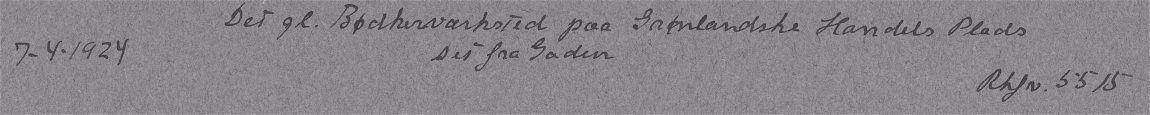 Det gl. Bødkerværksted paa Grønlandske Handels Plads
7-4-1924
Set fra Gaden
Rhfv. 5515